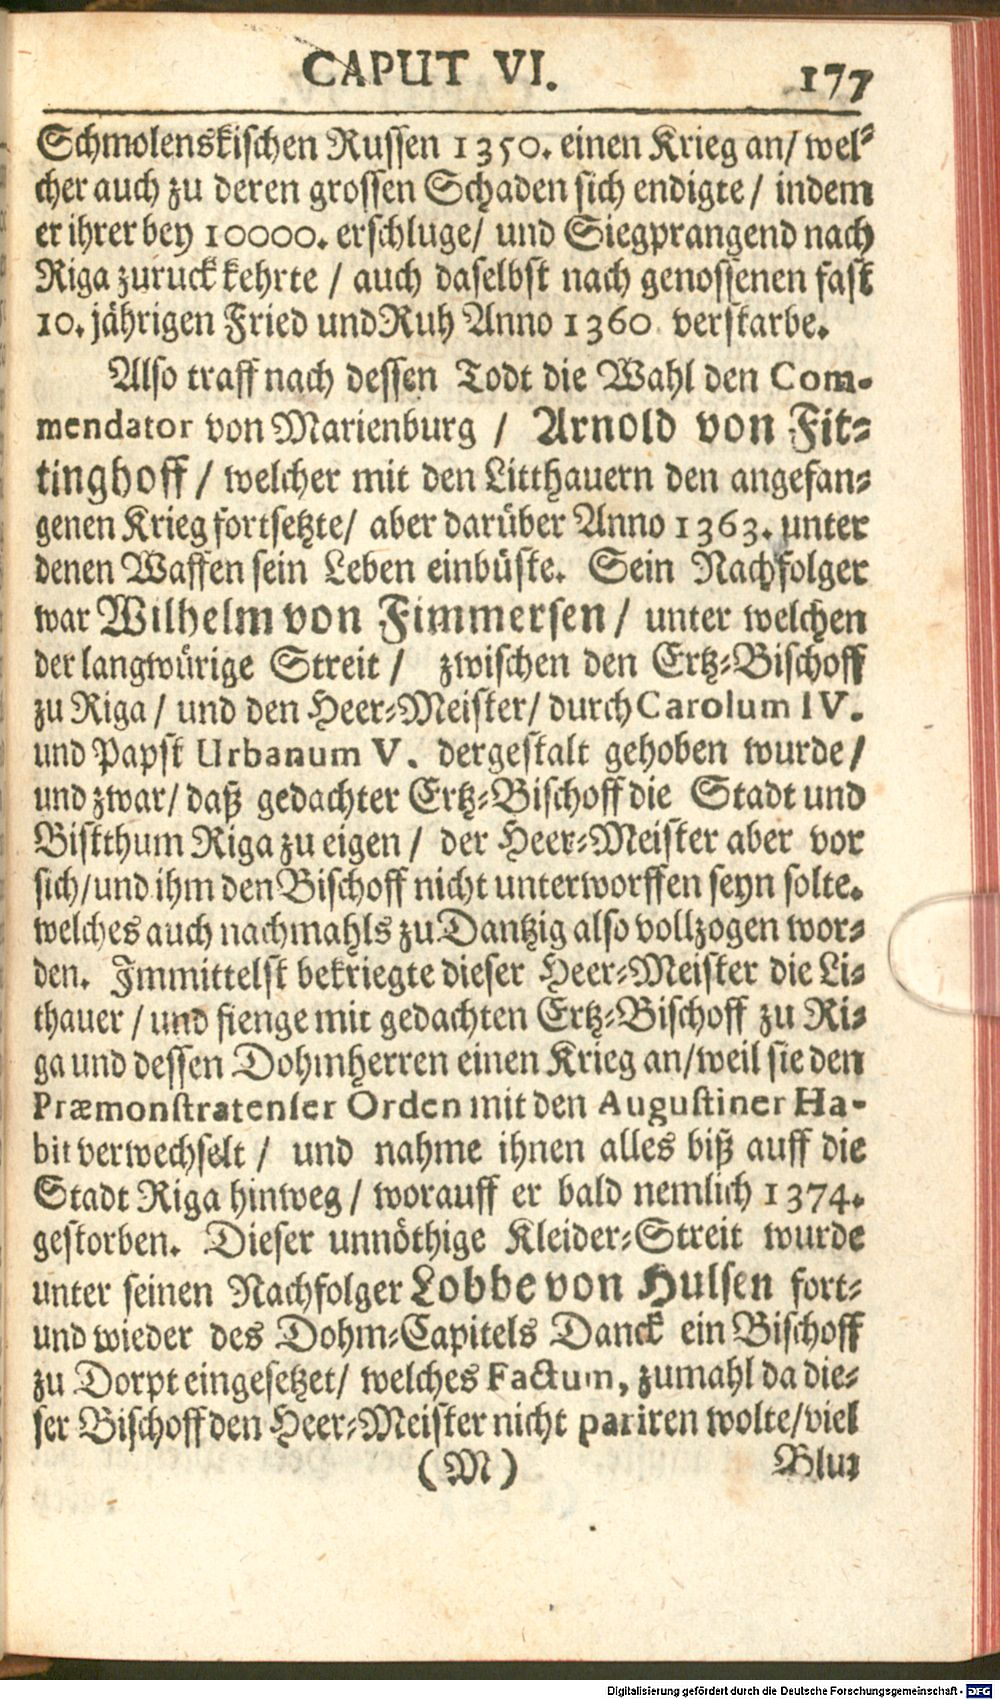 CAPUT VI. 177
Schmolenskischen Russen 1350. einen Krieg an/ wel-
cher auch zu deren grossen Schaden sich endigte / indem
er ihrer bey 10000. erschluge/ und Siegprangend nach
Riga zuruck kehrte / auch daselbst nach genossenen fast
10. jährigen Fried und Ruh Anno 1360. verstarbe.
Also traff nach dessen Todt die Wahl den Com-
mendator von Marienburg / Arnold von Fit-
tinghoff / welcher mit den Litthauern den angefan-
genen Krieg fortsetzte/ aber darüber Anno 1363. unter
denen Waffen sein Leben einbüste. Sein Nachfolger
war Wilhelm von Fimmersen / unter welchen
der langwürige Streit / zwischen den Ertz-Bischoff
zu Riga / und den Heer-Meister/ durch Carolum IV.
und Papst Urbanum V. dergestalt gehoben wurde /
und zwar/ daß gedachter Ertz-Bischoff die Stadt und
Bistthum Riga zu eigen / der Heer-Meister aber vor
sich/ und ihm den Bischoff nicht unterworffen seyn solte.
welches auch nachmahls zu Dantzig also vollzogen wor-
den. Immittelst bekriegte dieser Heer-Meister die Li-
thauer / und fienge mit gedachten Ertz-Bischoff zu Ri-
ga und dessen Dohmherren einen Krieg an/ weil sie den
Præmonstratenser Orden mit den Augustiner Ha-
bit verwechselt / und nahme ihnen alles biß auff die
Stadt Riga hinweg / worauff er bald nemlich 1374.
gestorben. Dieser unnöthige Kleider-Streit wurde
unter seinen Nachfolger Lobbe von Hulsen fort-
und wieder des Dohm-Capitels Danck ein Bischoff
zu Dorpt eingesetzet/ welches Factum, zumahl da die-
ser Bischoff den Heer-Meister nicht pariren wolte/ viel
(M) Blut
Digitalisierung gefördert durch die Deutsche Forschungsgemeinschaft - DFG